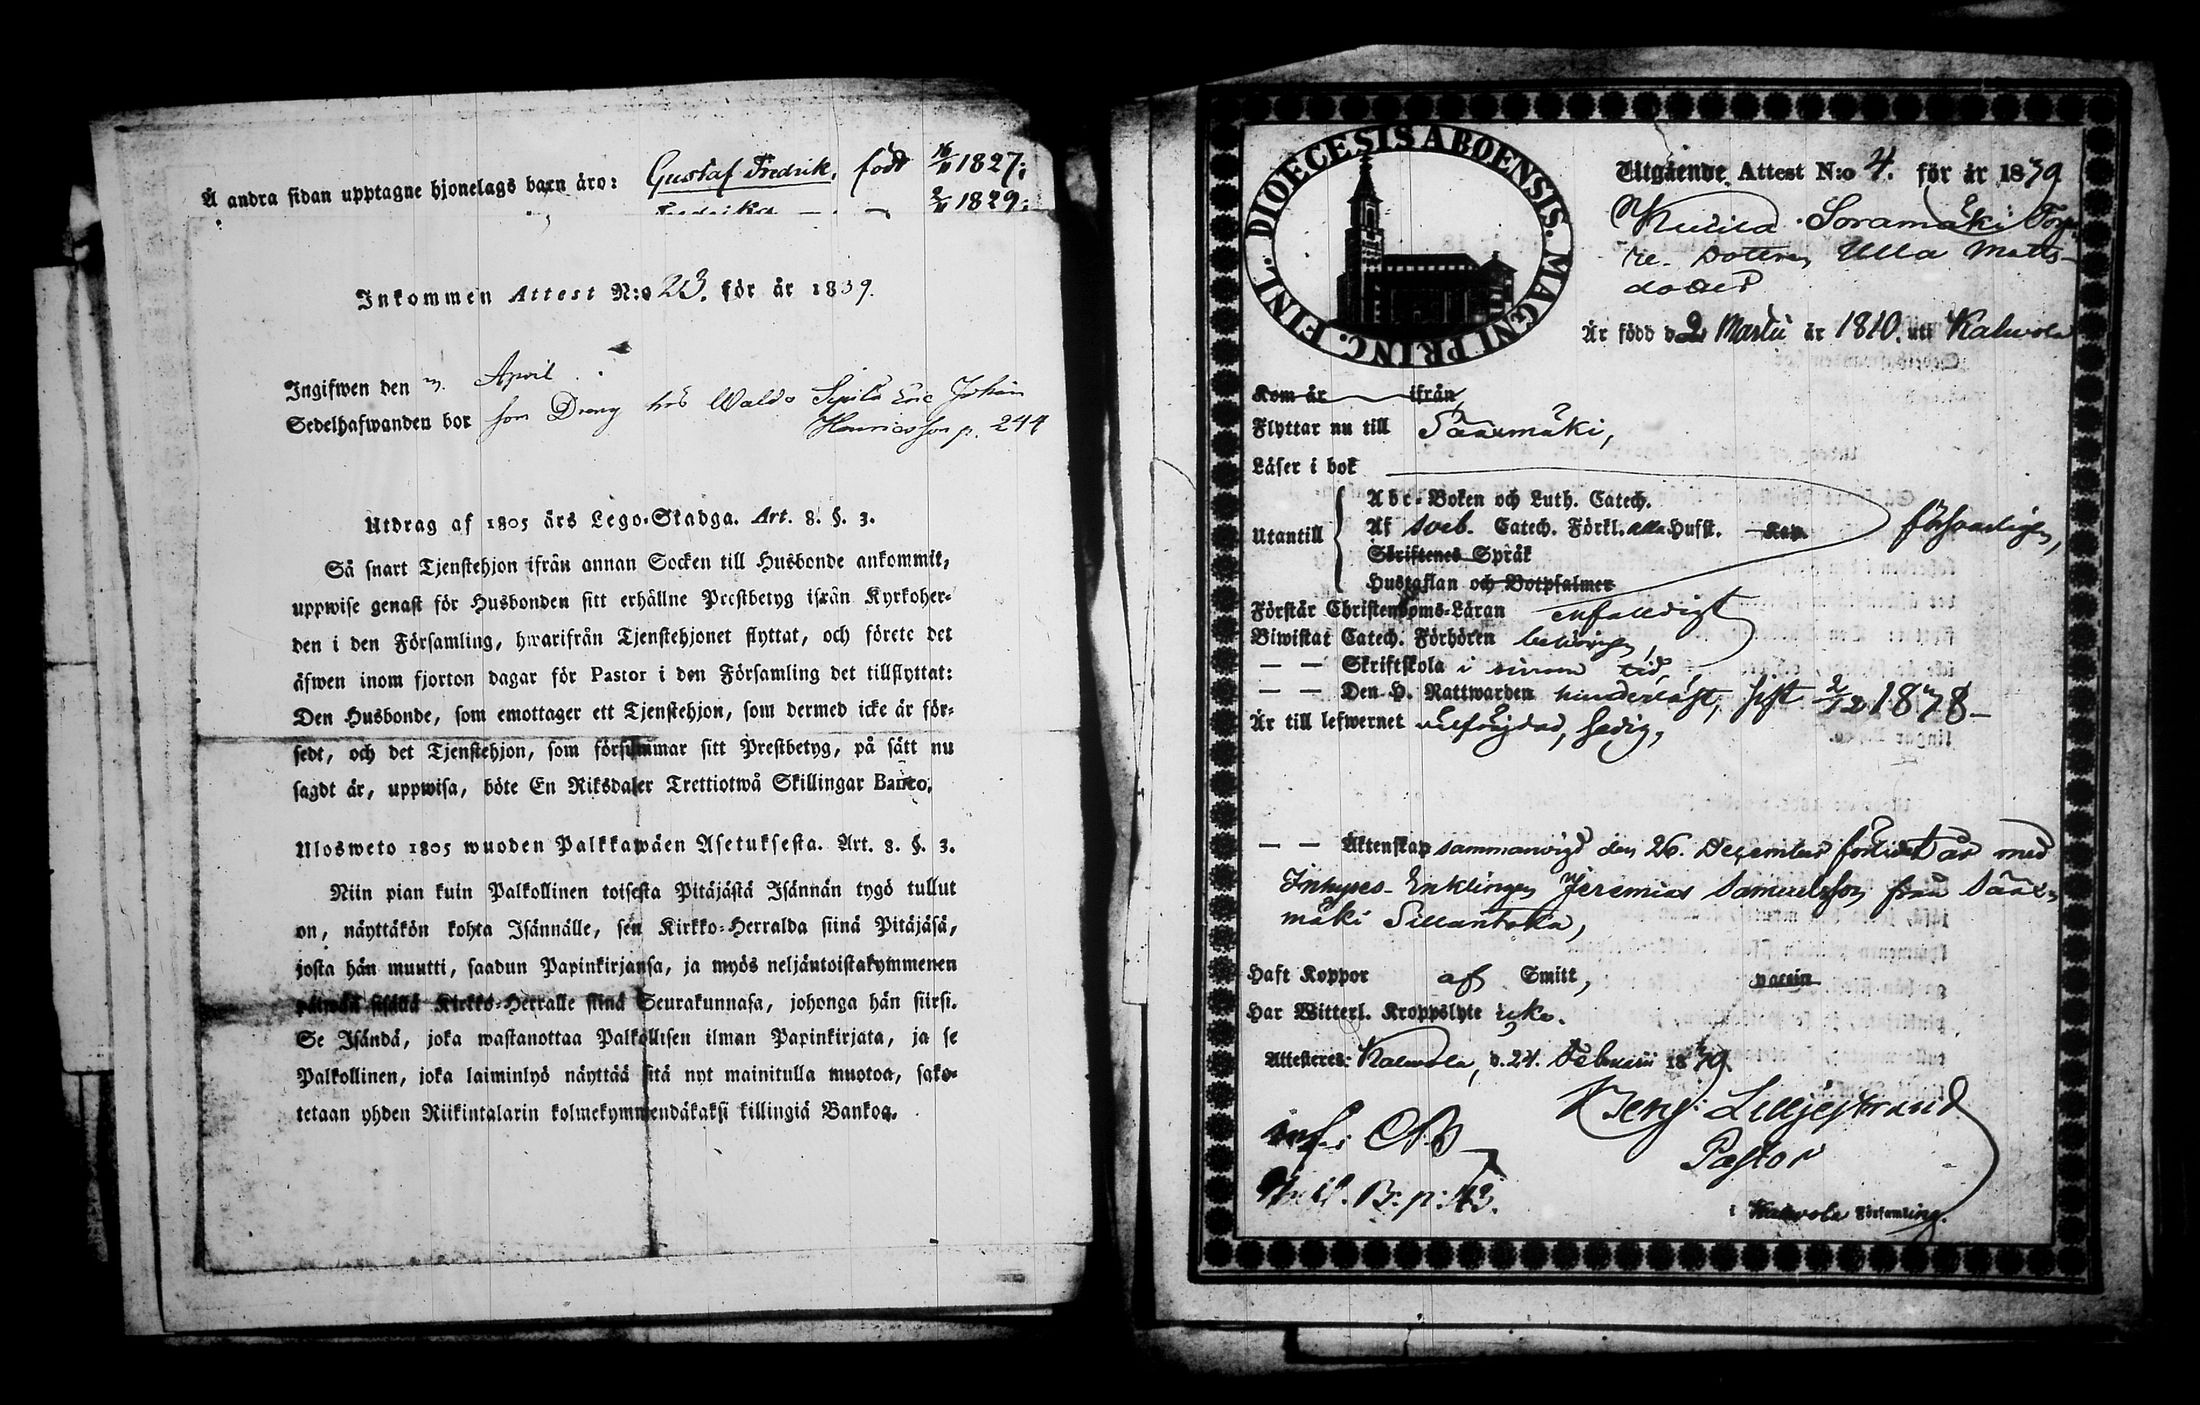 Å andra sidan upptagne hjonelags barn äro: Gustaf Fredrik, född 16/11 1827;
Fredrika — . — 1829;
Inkommen Attest N:o 23. för år 1839.
Ingifwen den April
Sedelhafwanden bor som Dreng hos Waldo Sipilä Eric Johan
Henricsson p. 244
Utdrag af 1805 års Lego-Stadga. Art. 8. §. 3.
Så snart Tjenstehjon ifrån annan Socken till Husbonde ankommit,
uppwise genast för Husbonden sitt erhållne Prestbetyg ifrån Kyrkoher-
den i den Församling, hwarifrån Tjenstehjonet flyttat, och förete det
äfwen inom fjorton dagar för Pastor i den Församling det tillflyttat:
Den Husbonde, som emottager ett Tjenstehjon, som dermed icke är för-
sedt, och det Tjenstehjon, som försummar sitt Prestbetyg, på sätt nu
sagdt är, uppwisa, böte En Riksdaler Trettiotwå Skillingar Banco.
Ulosweto 1805 wuoden Palkkawäen Asetuksesta. Art. 8. §. 3.
Niin pian kuin Palkollinen toisesta Pitäjästä Isännän tygö tullut
on, näyttäkön kohta Isännälle, sen Kirkko-Herralda siinä Pitäjäsä,
josta hän muutti, saadun Papinkirjansa, ja myös neljäntoistakymmenen
päiwän sisällä Kirkko-Herralle siinä Seurakunnasa, johonga hän siirsi.
Se Isändä, joka wastanottaa Palkollisen ilman Papinkirjata, ja se
Palkollinen, joka laiminlyö näyttää sitä nyt mainitulla muotoa, sako-
tetaan yhden Riikintalarin kolmekymmendäkaksi killingiä Bankoa.
DIOECESIS ABOENSIS. MAGNI PRINC. FINL.
Utgående Attest N:o 4. för år 1839
Soramäki Torp-
re- Dottren Ulla Matts-
dotter
Är född d. 2 Martii år 1810. uti Kalwola
Kom år ifrån
Flyttar nu till Säärmäki,
Läser i bok
Utantill
Abc-Boken och Luth. Catech.
Af Sveb. Catech. Förkl. alla Hufst. Kap. försvarligen,
Skriftenes Språk
Hustaflan och Botpsalmer
Förstår Christendoms-Läran enfaldigt
Biwistat Catech. Förhören behörigen,
— — Skriftskola i sinom tid,
— — Den H. Nattwarden hinderlöst, sist 2/12 1838 —
Är till lefwernet wälfrejdad, ledig,
— — Äktenskap sammanvigd den 26. December förledet år med
Inhyses- Enklingen Jeremias Samuelsson från Sääx-
mäki Sillantaka,
Haft Koppor af Smitt, vaccin
Har Witterl. Kroppslyte icke.
Attesteres: Kalwola, d. 24. Februarii 1839.
Beng: Lilljestrand
Pastor
i Kalwola Församling.
p: 43.